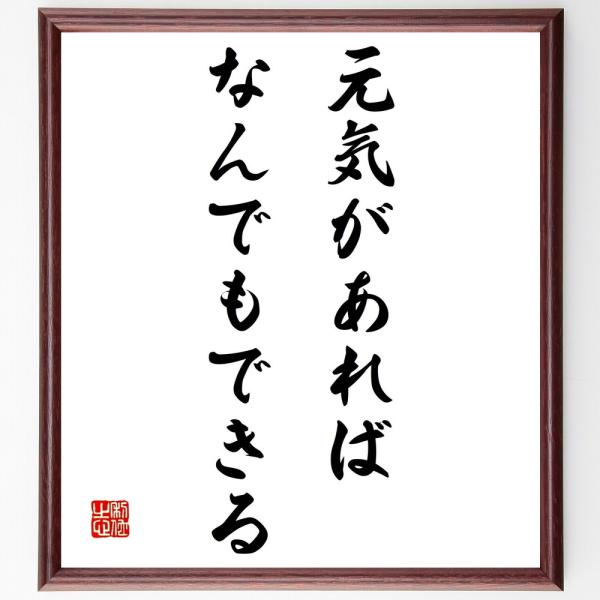 元気があれば
なんでもできる